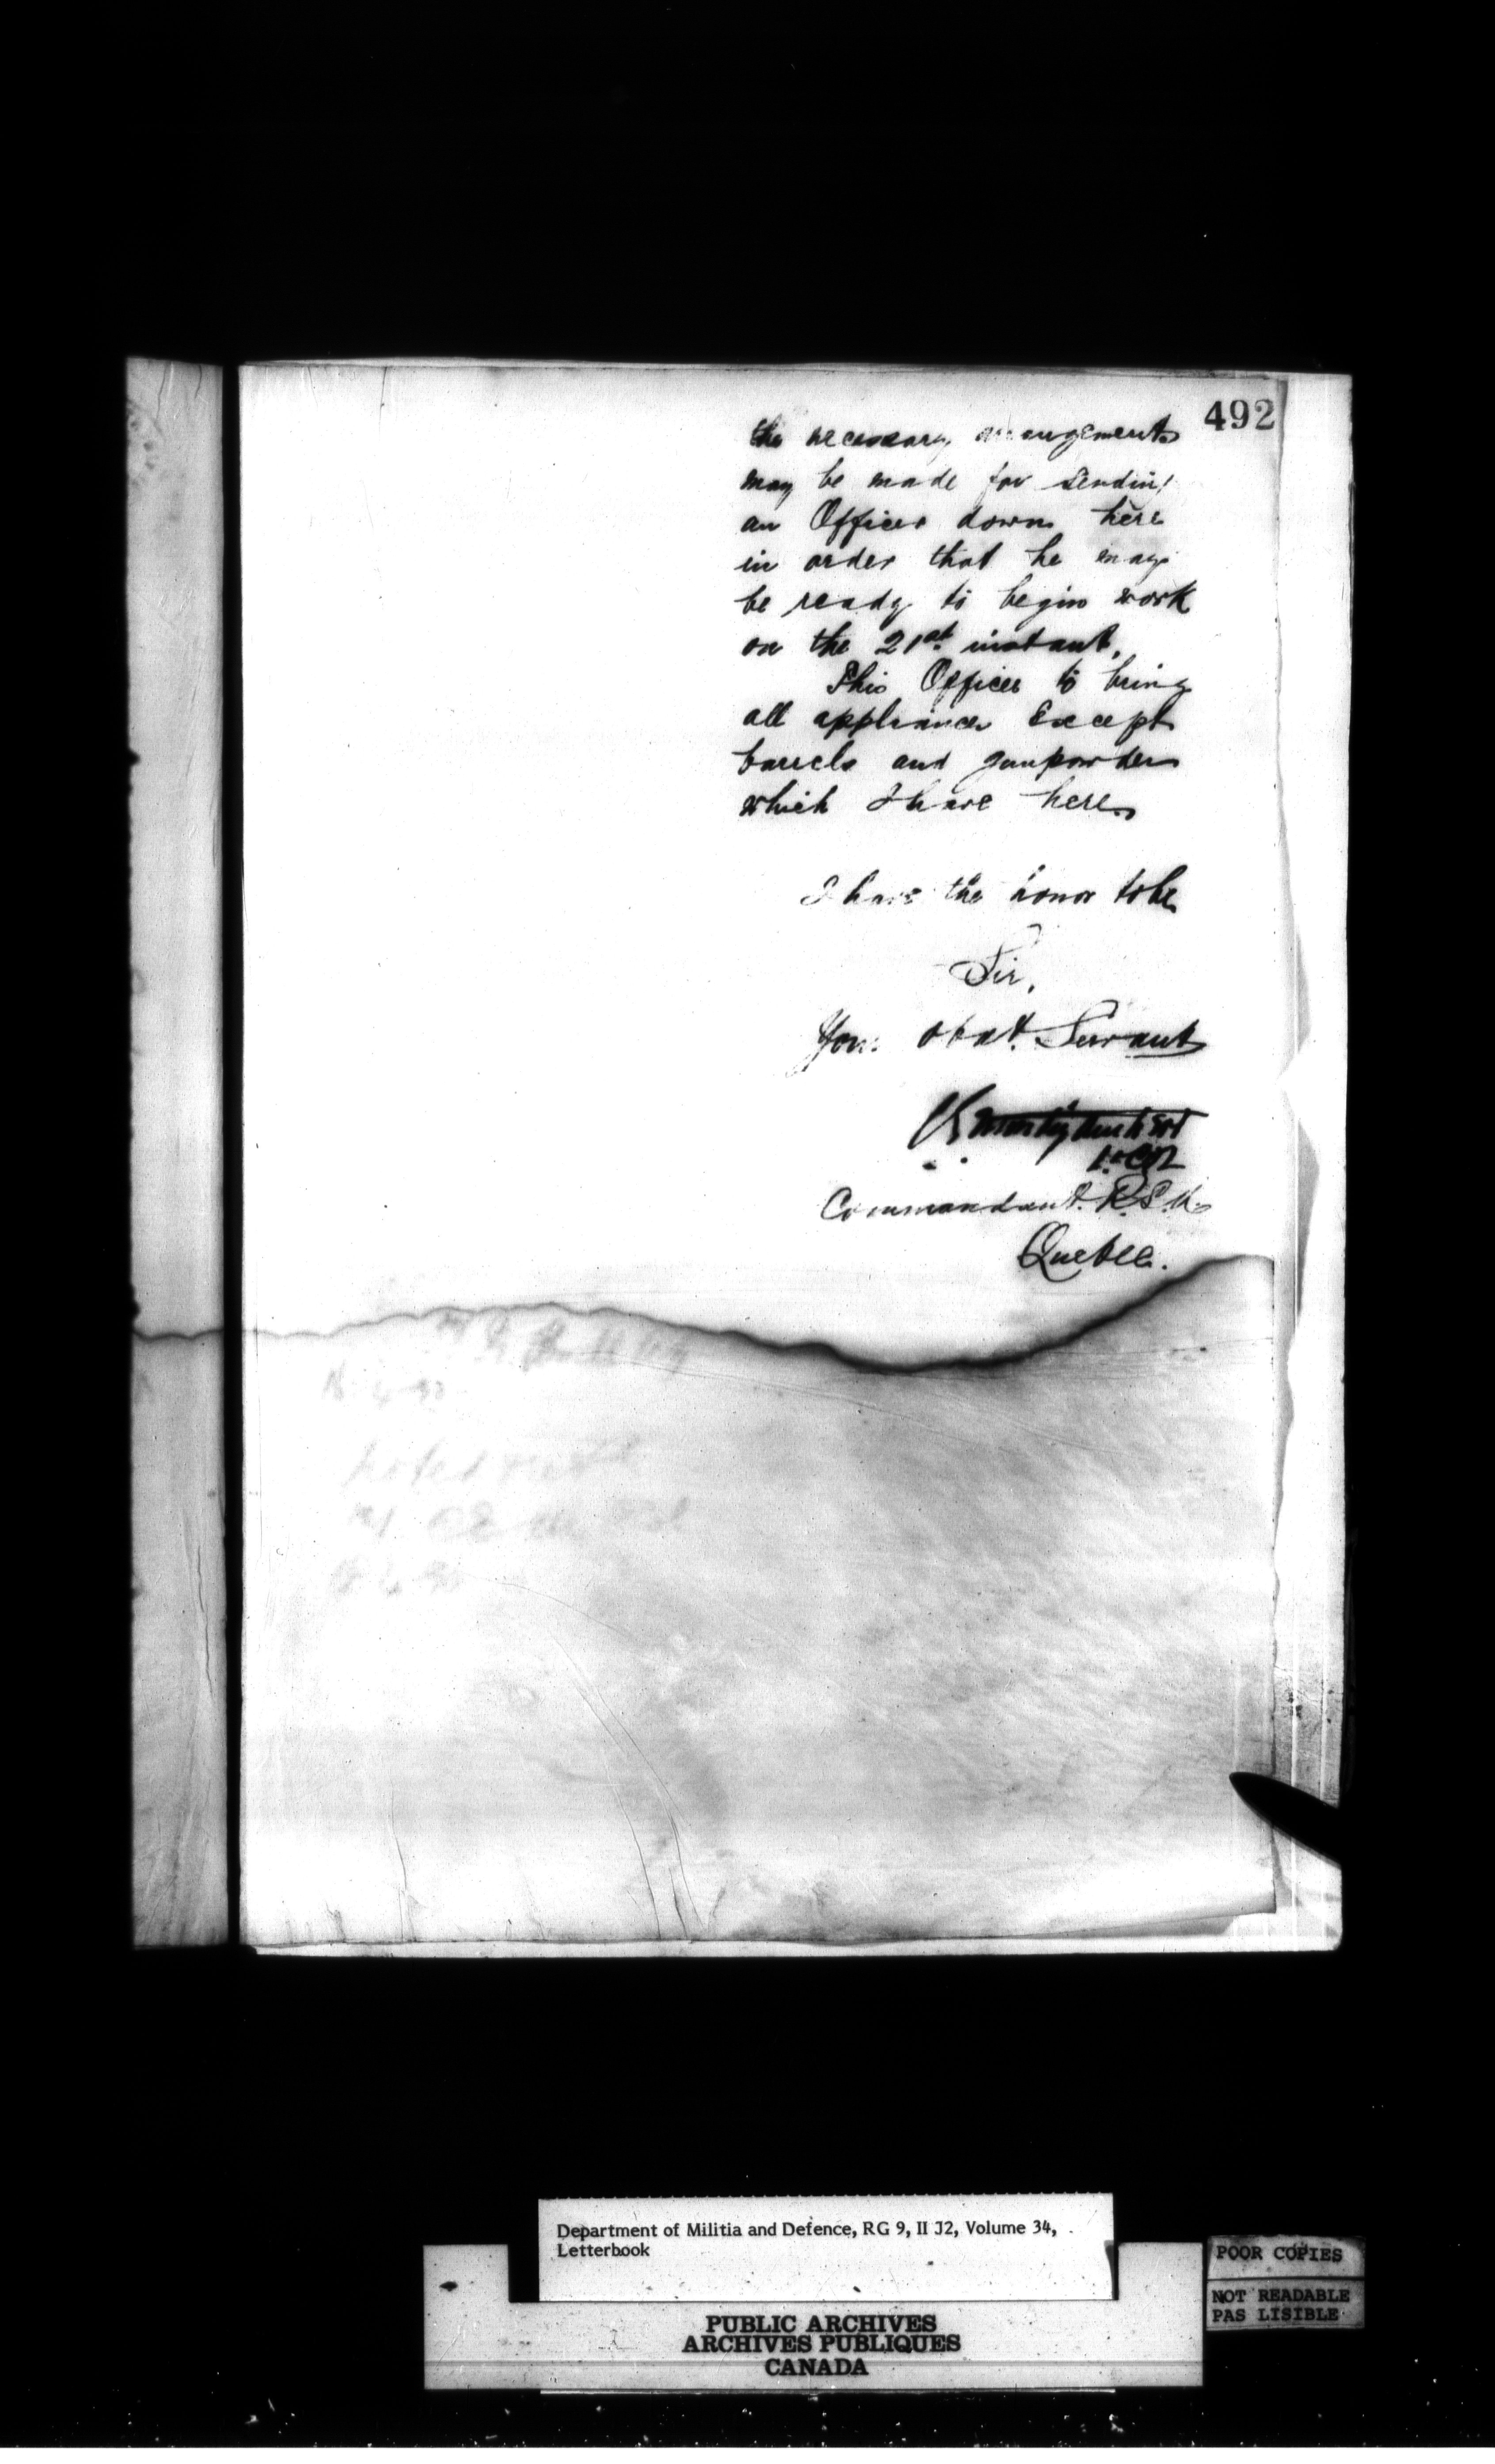 492
the necessary arrangements
may be made for sending
an Officer down here
in order that he may
be ready to begin work
on the 21st instant.
This Officer to bring
all appliances Except
barrels and gunpowder
which I have here.
I have the honor to be
Sir,
Your obdt. Servant
Commandant. R.S.
Quebec.
Department of Militia and Defence, RG 9, II J2, Volume 34,
Letterbook
POOR COPIES
NOT READABLE
PAS LISIBLE
PUBLIC ARCHIVES
ARCHIVES PUBLIQUES
CANADA